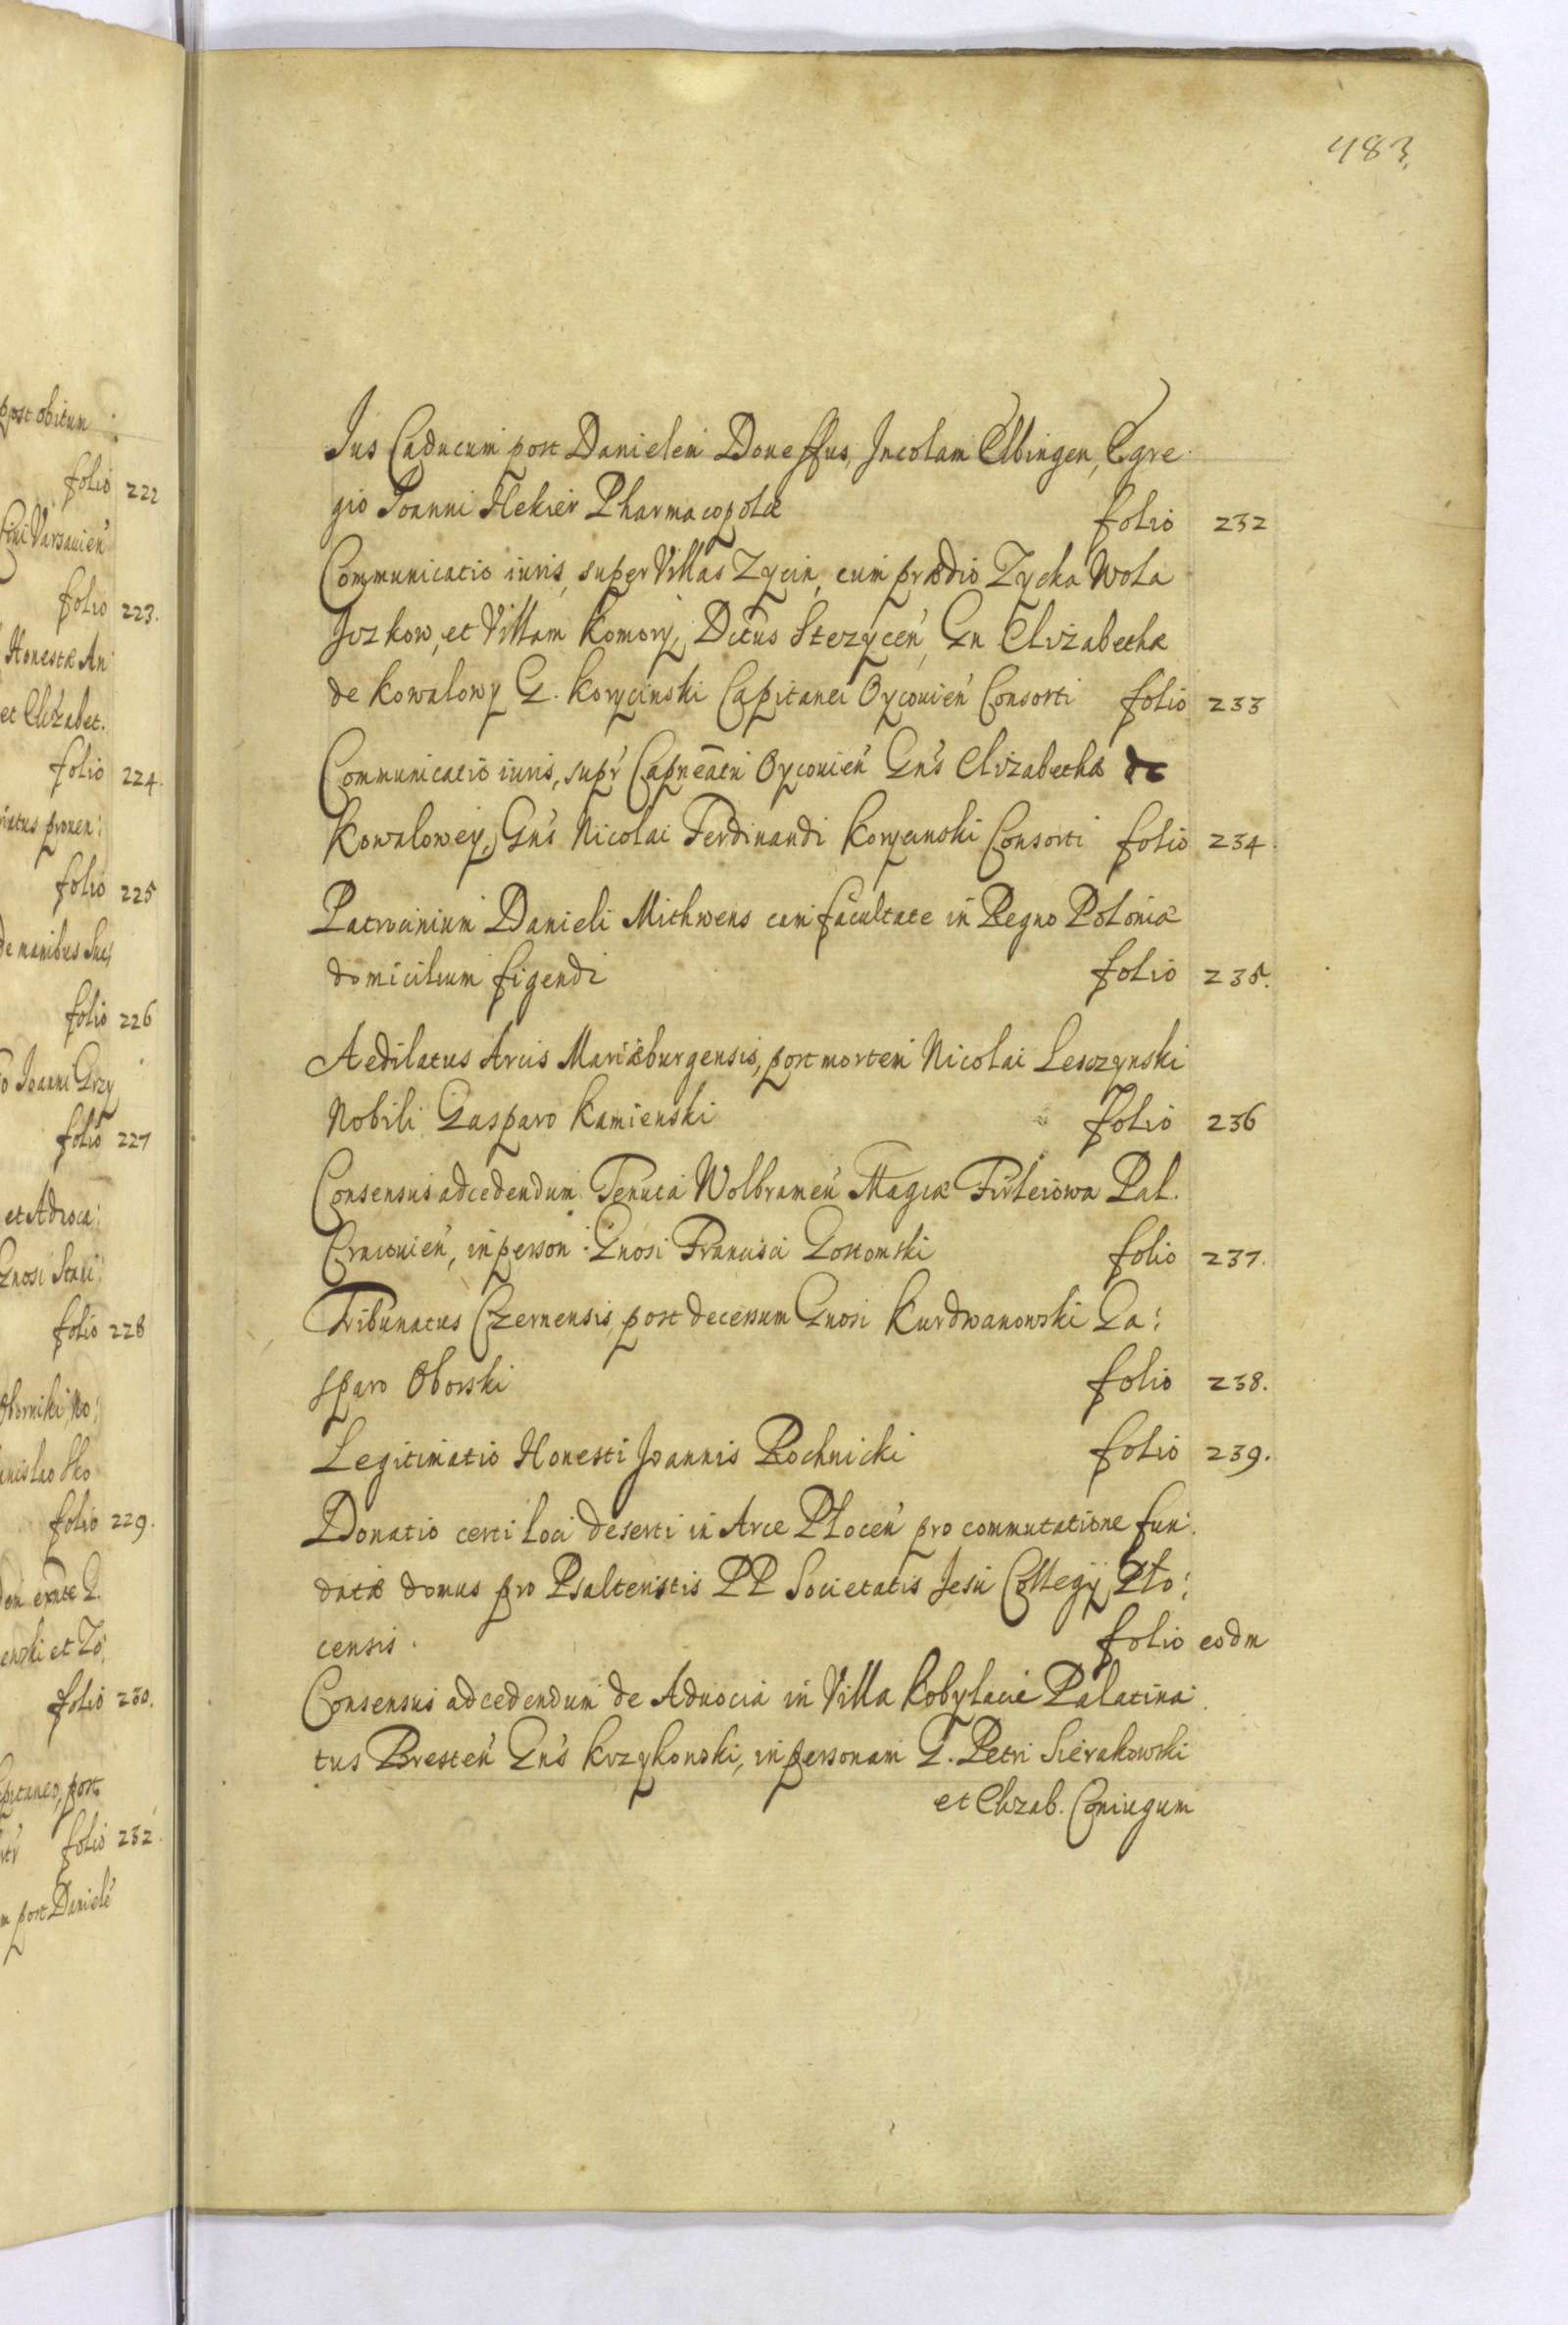 post obitum
folio 222
Varsauien
folio 223.
Honestæ An
et Elizabet.
folio 224.
folio 225
de manibus
folio 226
Joanni Grzy
folio 227
et Aduoca:
Gnosi Stani:
folio 228
folio 229.
folio 230.
post
folio 232.
post Danielē
483.
Ius Caducum post Danielem Doneffus, Incolam Elbingen, Egre
gio Joanni Hekier Pharmacopolæ folio 232
Communicatio iuris, super Villas Zycin, cum prædio Zycka Wola
Jvzkow, et Villam Komory, Dictus Stezyceń, Gn Elizabethæ
de Kowalowy G. Korycinski Capitanei Oycouień Consorti folio 233
Communicatio iuris, supr Capneatu Oycouień Gn's Elizabethæ de
Kowalowey, Gn's Nicolai Ferdinandi Korycinski Consorti folio 234.
Patrocinium Danieli Mithwens cum facultate in Regno Poloniæ
domicilium figendi folio 235.
Aedilatus Arcis Mariæburgensis, post mortem Nicolai Lesczynski
Nobili Gasparo Kamienski folio 236
Consensus ad cedendum Tenuta Wolbrameń Magcæ Firleiowa Pal.
Cracouień, in person: Gnosi Francisci Gostomski folio 237.
Tribunatus Czernensis, post decessum Gnosi Kurdwanowski Ga:
sparo Oborski folio 238.
Legitimatio Honesti Joannis Rochnicki folio 239.
Donatio certi loci deserti in Arce Płoceń pro commutatione fun:
datæ domus pro Psalteristis PP Societatis Jesu Collegÿ Pło:
censis. folio eodm
Consensus ad cedendum de Aduocia in Villa Kobylacie Palatina
tus Bresteń Gn's Krzykonski, in personam G. Petri Sierakowski
et Elizab. Coniugum